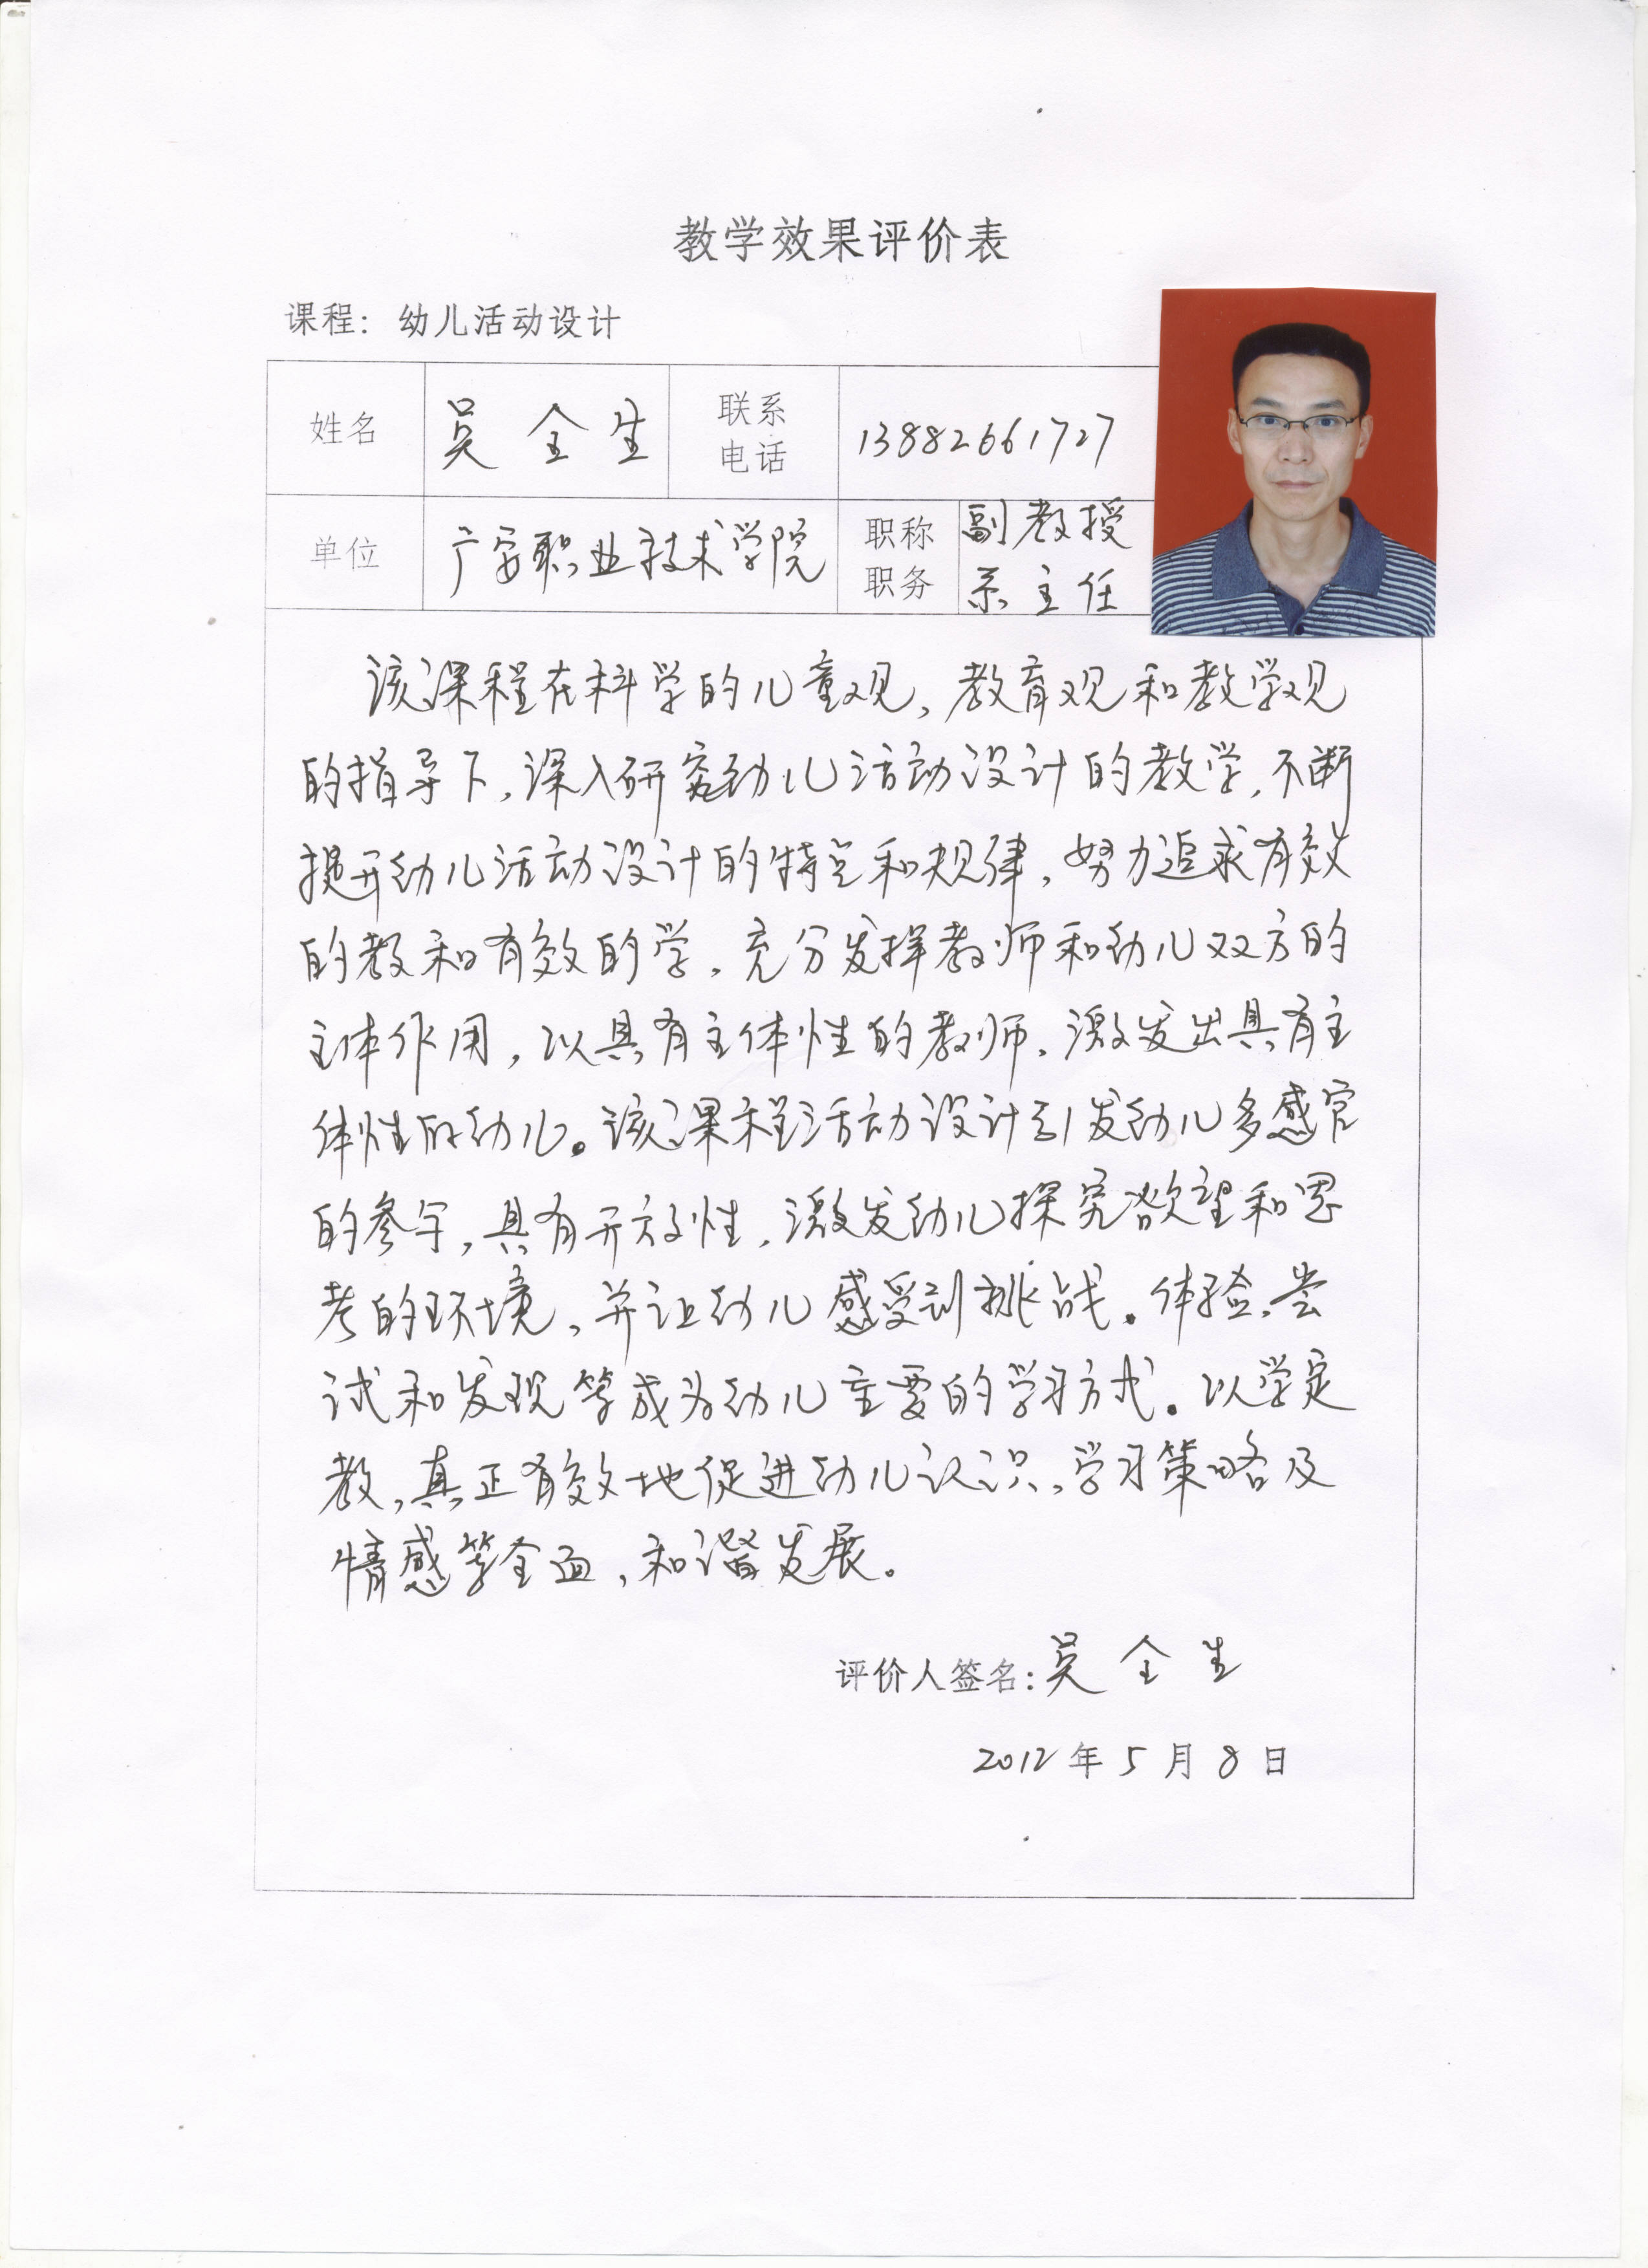 教学效果评价表
课程：幼儿活动设计
姓名 吴全生 联系电话 13882661727
单位 广安职业技术学院 职称职务 副教授 系主任
该课程在科学的儿童观、教育观和教学观
的指导下，深入研究幼儿活动设计的教学，不断
提升幼儿活动设计的特色和规律，努力追求有效
的教和有效的学，充分发挥教师和幼儿双方的
主体作用，以具有主体性的教师，激发出具有主
体性的幼儿。该课程活动设计引发幼儿多感官
的参与，具有开放性，激发幼儿探究欲望和思
考的环境，并让幼儿感受到挑战。体验、尝
试和发现等成为幼儿主要的学习方式。以学定
教，真正有效地促进幼儿认识、学习策略及
情感等全面、和谐发展。
评价人签名：吴全生
2012年5月8日